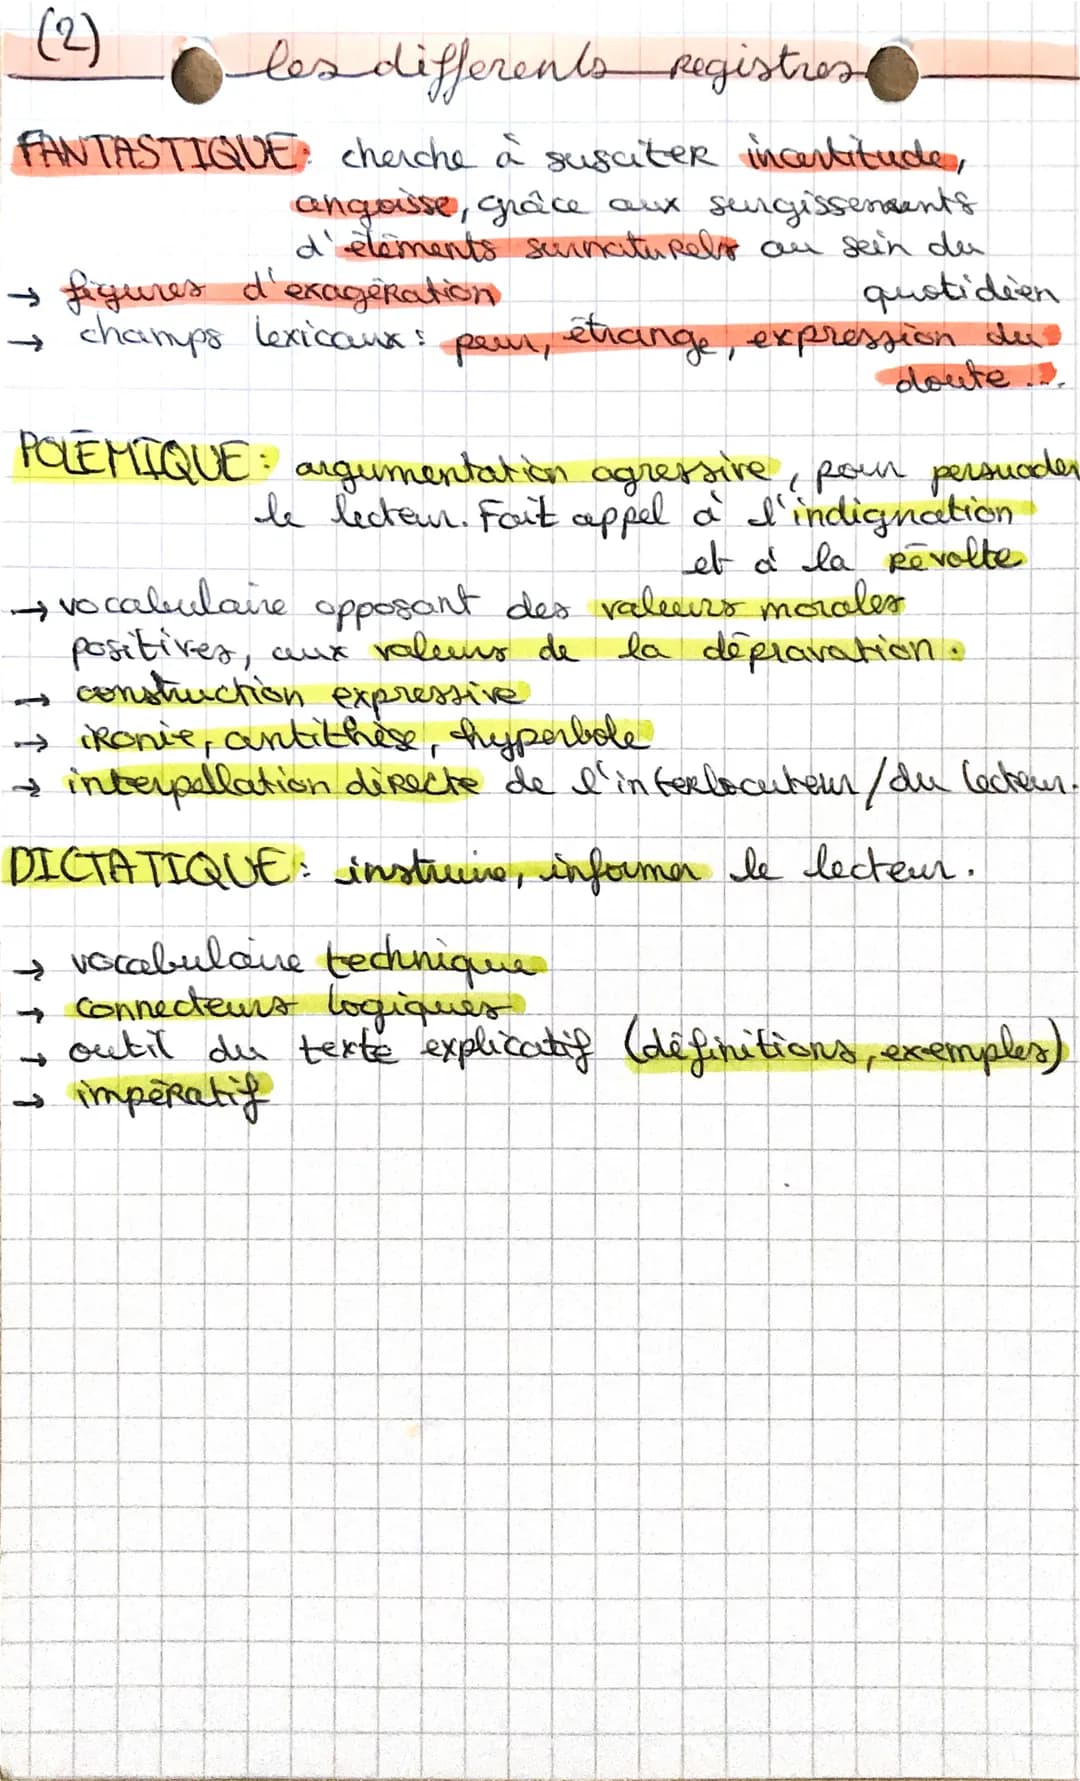 (2)
les differents registres
FANTASTIQUE: cherche à susciter incertitude,
angoisse, grâce aux surgissements
d'éléments surnaturels au sein du
quotidien
→ figures d'exagération
→ champs lexicaux : peur, étrange, expression du
doute ...
POLÉMIQUE : argumentation agressive, pour persuader
le lecteur. Fait appel à l'indignation
et à la révolte
→ vocabulaire opposant des valeurs morales
positives, aux valeurs de la dépravation.
→ construction expressive
→ ironie, antithèse, hyperbole
→ interpellation directe de l'interlocuteur / du lecteur.
DICTATIQUE : instruire, informer le lecteur.
→ vocabulaire technique
→ connecteurs logiques
→ outil du texte explicatif (définitions, exemples)
→ impératif